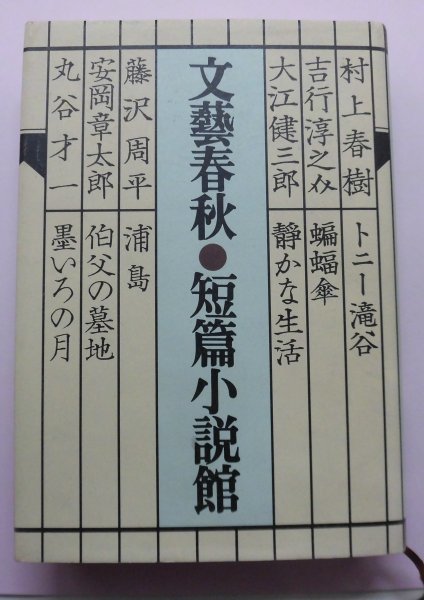 村上春樹 トニー滝谷
吉行淳之介 蝙蝠傘
大江健三郎 静かな生活
文藝春秋●短篇小説館
藤沢周平 浦島
安岡章太郎 伯父の墓地
丸谷才一 墨いろの月